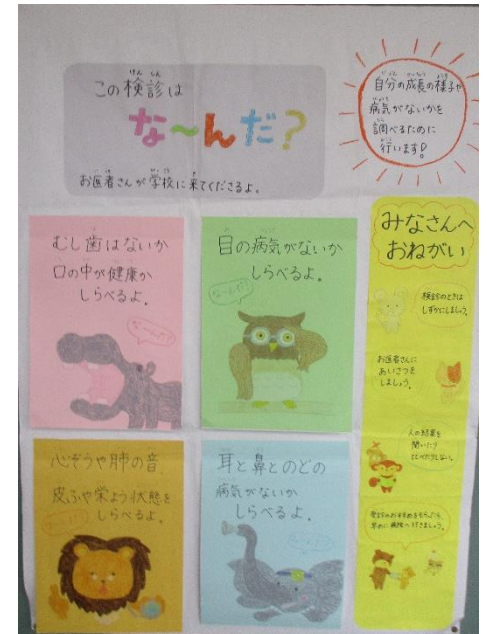 この検診は
な〜んだ?
お医者さんが学校に来てくださるよ。
自分の成長の様子や
病気がないかを
調べるために
行います!
むし歯はないか
口の中が健康か
しらべるよ。
な〜んだ?
目の病気がないか
しらべるよ。
な〜んだ?
心ぞうや肺の音、
皮ふや栄よう状態を
しらべるよ。
な〜んだ?
耳と鼻とのどの
病気がないか
しらべるよ。
な〜んだ?
みなさんへ
おねがい
検診のときは
しずかにしましょう。
お医者さんに
あいさつを
しましょう。
人の結果を
聞いたり
くらべたりしない。
早めに病院へ行きましょう。